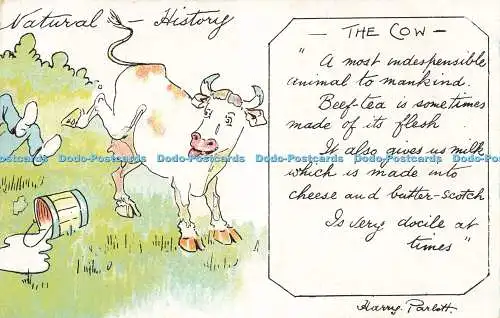 Natural - History
- THE COW -
"A most indespensible
animal to mankind.
Beef-tea is sometimes
made of its flesh
It also gives us milk
which is made into
cheese and butter-scotch
Is very docile at
times"
Harry. Parlett.
Dodo-Postcards Dodo-Postcards Dodo-Postcards Dodo-Postcards Dodo-Postcards Dodo-Postcards